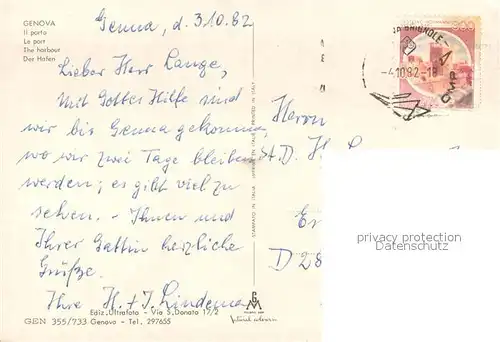 GENOVA
Il porto
Le port
The harbour
Der Hafen
Genua, d. 3.10.82
Lieber Herr Lange,
Mit Gottes Hilfe sind
wir bis Genua gekommen,
wo wir zwei Tage bleiben
werden; es gibt viel zu
sehen. - Ihnen und
Ihrer Gattin herzliche
Grüße.
Ihre H. + I. Lindema
Ediz. Ultrafoto - Via S. Donato 17/2
GEN 355/733 Genova - Tel. 297655
STAMPATO IN ITALIA
PRINTED IN ITALY
BRIGNOLE
-4.10.82-18
Herrn
A.D. H
D 28
privacy protection
Datenschutz